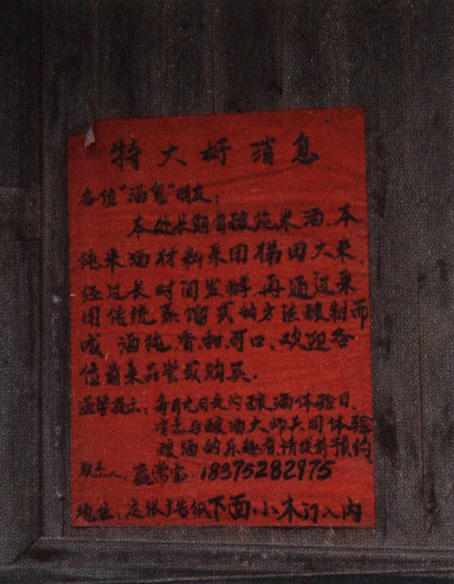 特大好消息
各位“酒鬼”朋友:
本处长期有酿纯米酒.本
纯米酒材料采用梯田大米.
经过长时间发酵.再通过采
用传统蒸馏式的方法酿制而
成.酒纯.香甜.可口.欢迎各
位前来品尝或购买.
温馨提示:每月九日定为酿酒体验日.
有意与酿酒大师共同体验
酿酒的乐趣者.请提前预约
联系人: 18375282975
地址:这张广告纸下面小木门入内